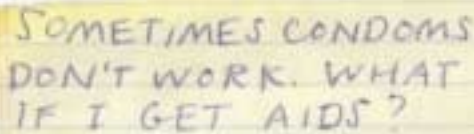 SOMETIMES CONDOMS
DON'T WORK. WHAT
IF I GET AIDS?